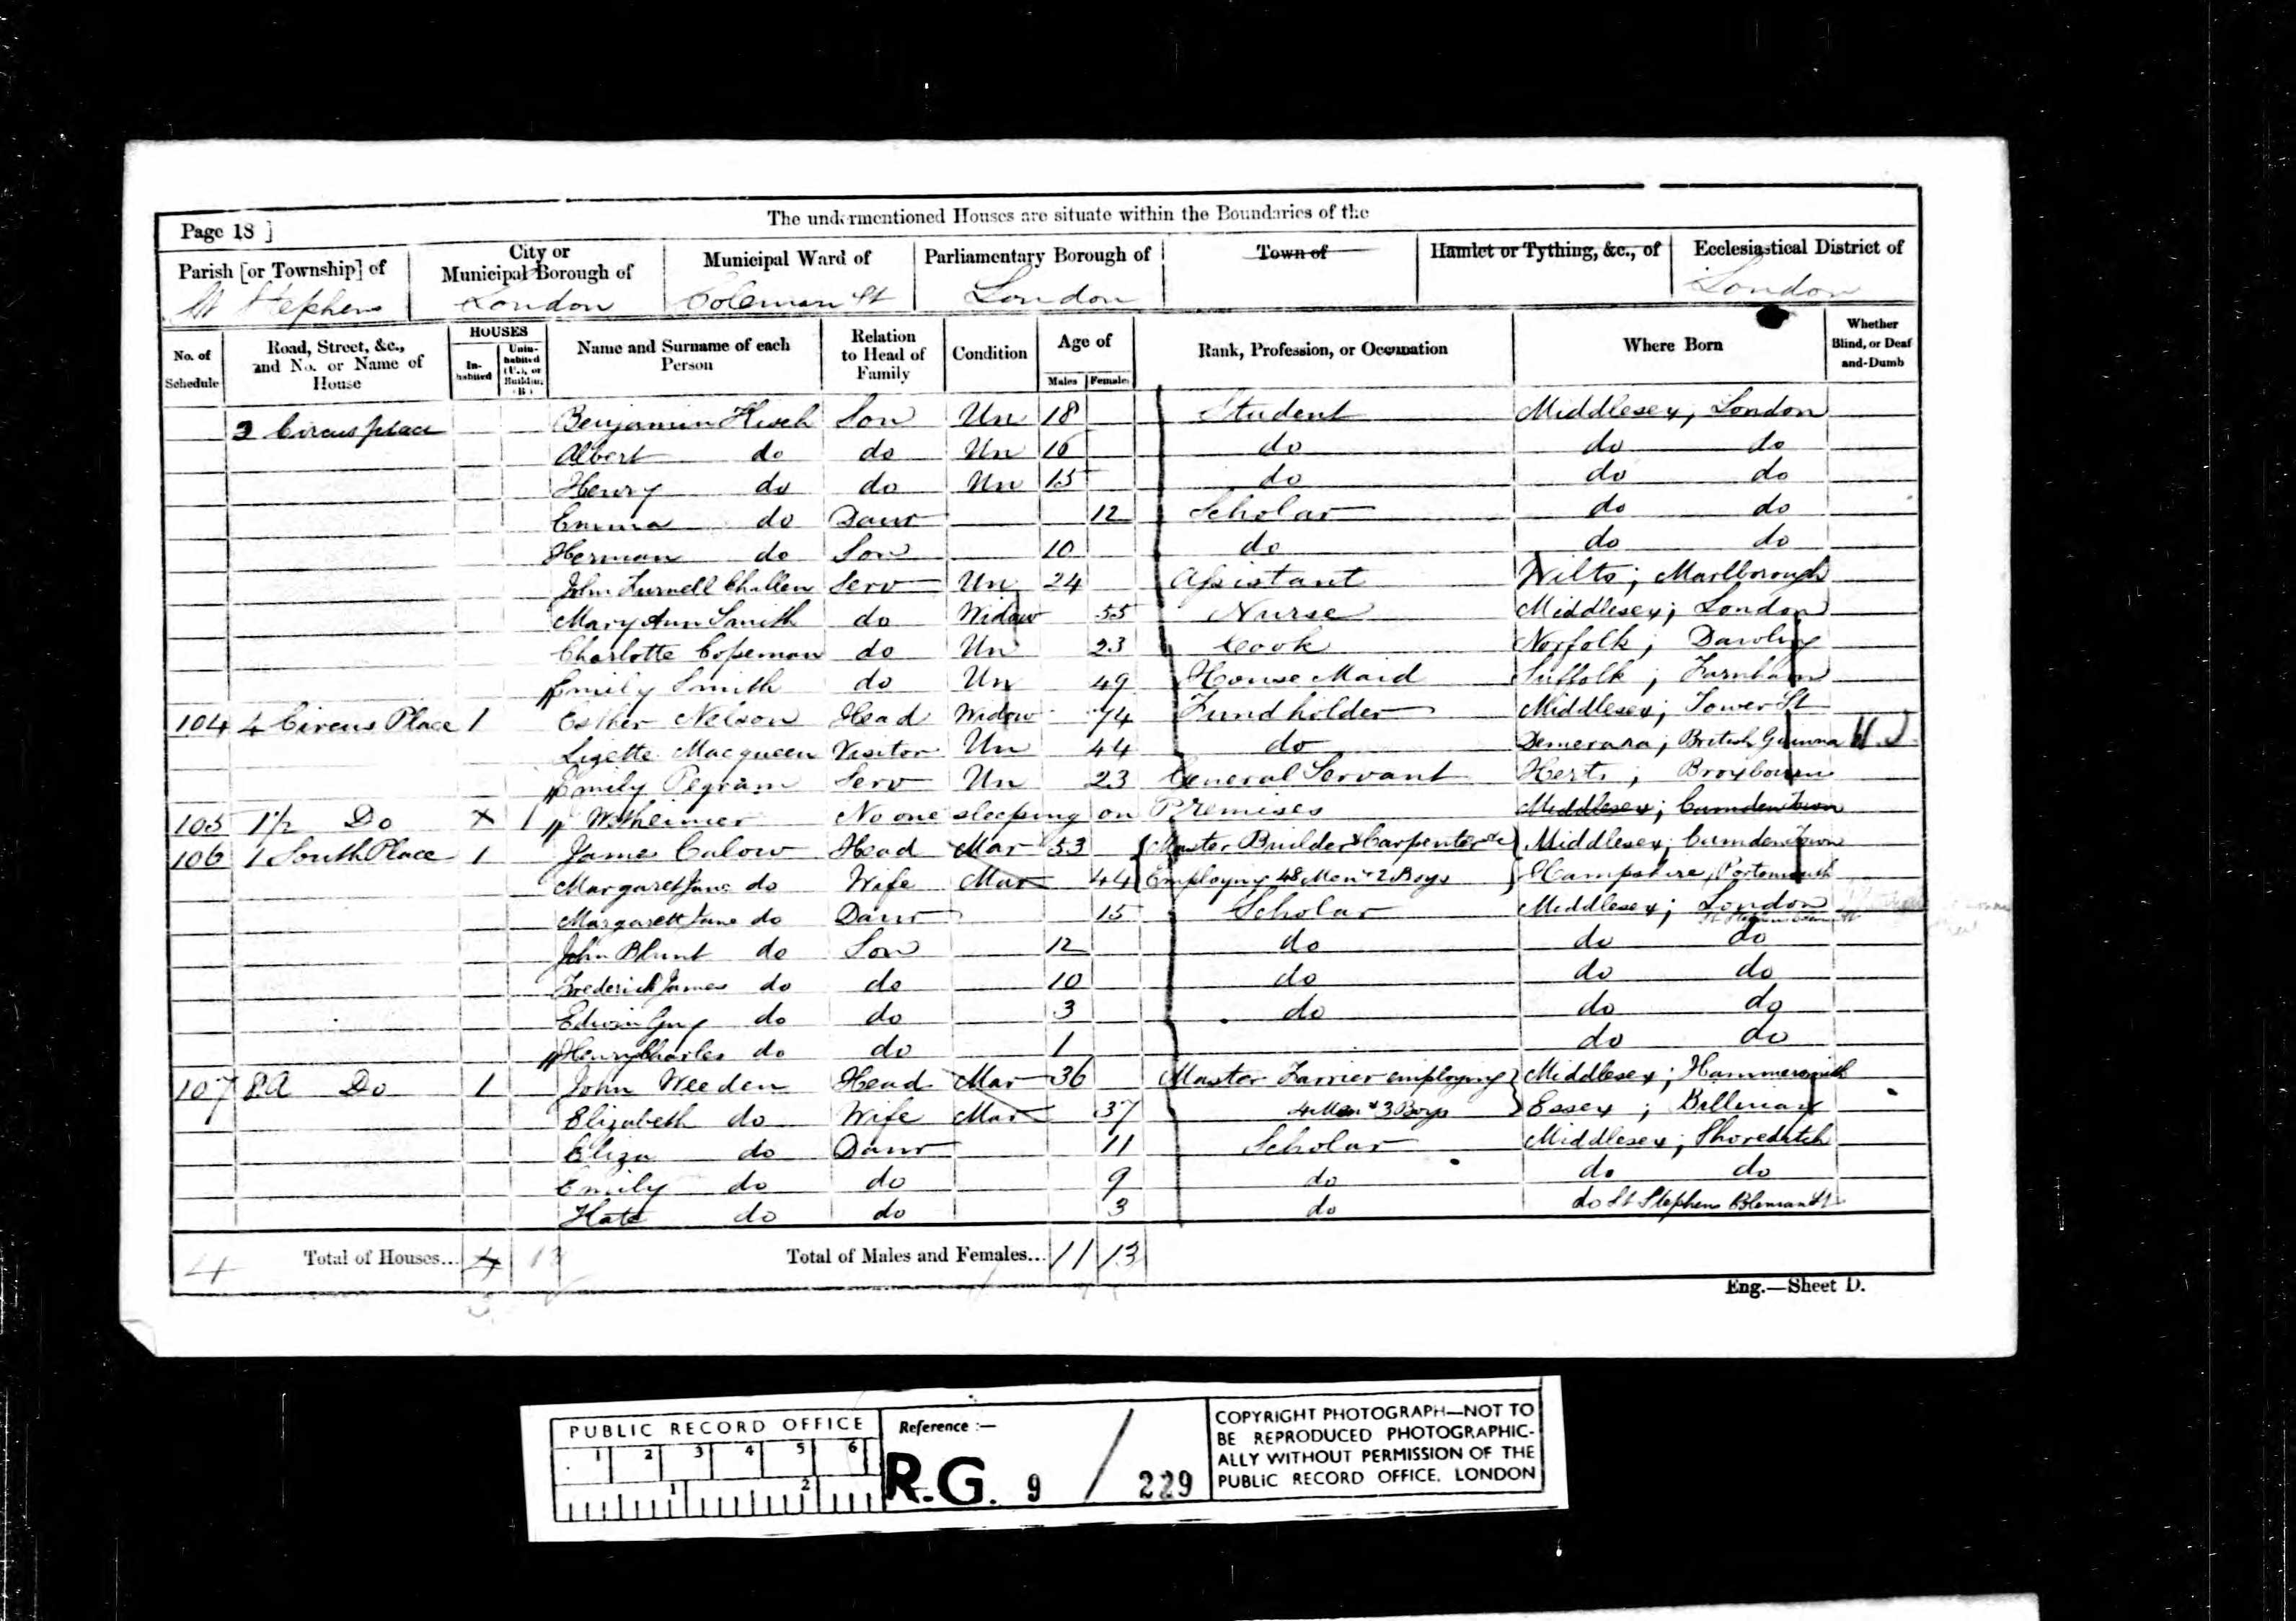 The undermentioned Houses are situate within the Boundaries of the
Page 18 ]
Parish [or Township] of
St Stephens
City or Municipal Borough of
London
Municipal Ward of
Coleman St
Parliamentary Borough of
London
Town of
Hamlet or Tything, &c., of
Ecclesiastical District of
London
No. of Schedule
Road, Street, &c., and No. or Name of House
HOUSES
In-habited
Unin-habited (U.), or Building (B.)
Name and Surname of each Person
Relation to Head of Family
Condition
Age of
Males Females
Rank, Profession, or Occupation
Where Born
Whether Blind, or Deaf-and-Dumb
3 Circus place Benjamin Son Un 18 Student Middlesex, London
Albert do do Un 16 do do do
Henry do do Un 15 do do do
Emma do Daur 12 Scholar do do
Herman do Son 10 do do do
John Furnell Challen Serv Un 24 Assistant Wilts; Marlborough
Mary Ann Smith do Widow 55 Nurse Middlesex; London
Charlotte Copeman do Un 23 Cook Norfolk;
Emily Smith do Un 49 House Maid Suffolk; Farnham
104 4 Circus Place 1 Esther Nelson Head Widow 74 Fundholder Middlesex; Tower St
Lizette Macqueen Visitor Un 44 do Demerara; British Guiana
Emily Pegram Serv Un 23 General Servant Herts; Broxbourn
105 1½ Do x 1 No one sleeping on Premises Middlesex; Camden Town
106 1 South Place 1 James Calow Head Mar 53 Master Builder & Carpenter &c Middlesex; Camden Town
Margaret Jane do Wife Mar 44 Employng 48 Men & 2 Boys Hampshire; Portsmouth
Margarett Jane do Daur 15 Scholar Middlesex; London
John Blunt do Son 12 do do do
Frederick James do do 10 do do do
Edwin Guy do do 3 do do do
Henry Charles do do 1 do do
107 8A Do 1 John Weeden Head Mar 36 Master Farrier employng Middlesex; Hammersmith
Elizabeth do Wife Mar 37 4 Men & 3 Boys Essex;
Eliza do Daur 11 Scholar Middlesex; Shoreditch
Emily do do 9 do do do
Kate do do 3 do do St Stephens Coleman St
4 Total of Houses... 4 13 Total of Males and Females... 11 13
Eng.—Sheet D.
PUBLIC RECORD OFFICE
1 2 3 4 5 6
1 2
Reference :—
R.G. 9 / 229
COPYRIGHT PHOTOGRAPH—NOT TO
BE REPRODUCED PHOTOGRAPHIC-
ALLY WITHOUT PERMISSION OF THE
PUBLIC RECORD OFFICE, LONDON